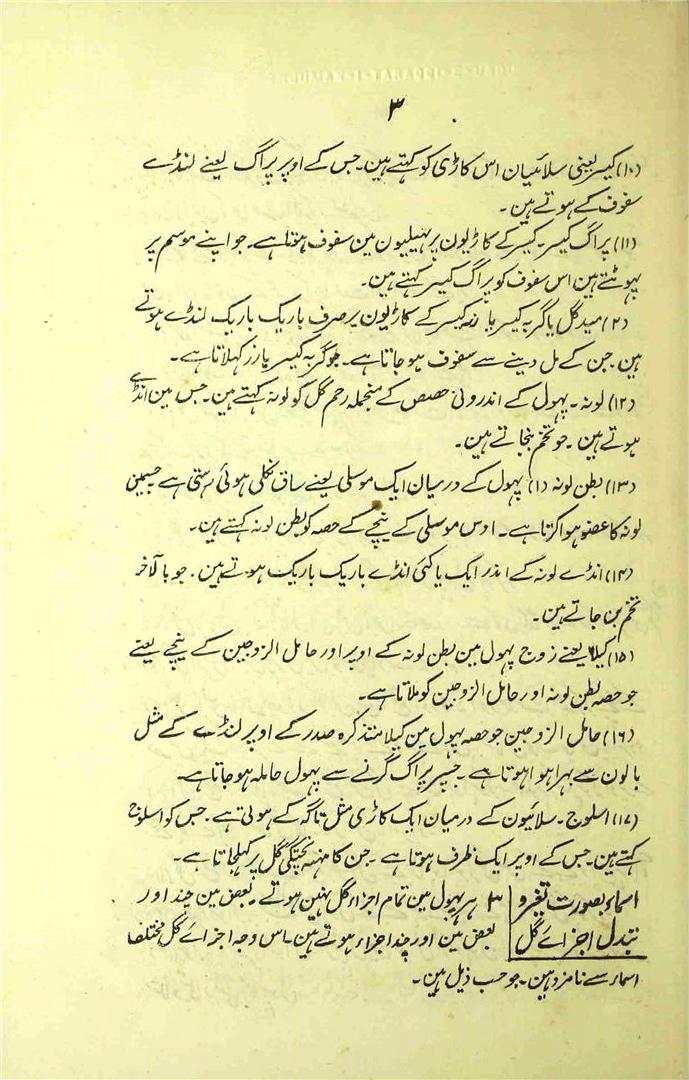 ۳
(۱۰) کیسر یعنی سلائیان اس کاڑی کو کہتے ہین۔ جس کے اوپر پراگ یعنے لنڈے
سفوف کے ہوتے ہین۔
(۱۱) پراگ کیسر۔ کیسر کے کاڑیون پر تہیلیون مین سفوف ہوتا ہے۔ جو اپنے موسم پر
پہوٹتے ہین اس سفوف کو پراگ کیسر کہتے ہین۔
(۲) میدگل یا گربہ کیسر یا زر کیسر کے کاڑیون پر صرف باریک باریک لنڈے ہوتے
ہین۔ جن کے مل دینے سے سفوف ہو جاتا ہے۔ جو گربہ کیسر یا زر کہلاتا ہے۔
(۱۲) لونہ۔ پہول کے اندرونی حصص کے منجملہ رحم گل کو لونہ کہتے ہین۔ جس مین انڈے
ہوتے ہین۔ جو تخم بنجاتے ہین۔
(۱۳) بطن لونہ (۱) پہول کے درمیان ایک موسلی یعنے ساق نکلی ہوئی رہتی ہے جسمین
لونہ کا عضو ہوا کرتا ہے۔ اوس موسلی کے نیچے کے حصہ کو بطن لونہ کہتے ہین۔
(۱۴) انڈے لونہ کے اندر ایک یا کئی انڈے باریک باریک ہوتے ہین۔ جو بالآخر
تخم بن جاتے ہین۔
(۱۵) کیلا یعنے زوج پہول مین بطن لونہ کے اوپر اور حامل الزوجین کے نیچے یعنے
جو حصہ بطن لونہ اور حامل الزوجین کو ملاتا ہے۔
(۱۶) حامل الزوجین جو حصہ پہول مین کیلا متذکرہ صدر کے اوپر لنڈے کے مثل
بالون سے بہرا ہوا ہوتا ہے۔ جسپر پراگ گرنے سے پہول حاملہ ہو جاتا ہے۔
(۱۷) اسلوج۔ سلائیون کے درمیان ایک کاڑی مثل تاگہ کے ہوتی ہے۔ جس کو اسلوج
کہتے ہین۔ جس کے اوپر ایک ظرف ہوتا ہے۔ جن کا منہہ پختگی گل پر کہلجاتا ہے۔
اسماء بصورت تغیر و
تبدل اجزائے گل
۳ ہر پہول مین تمام اجزاء گل نہین ہوتے۔ بعض مین چند اور
بعض مین اور چند اجزاء ہوتے ہین۔ اس وجہ اجزائے گل مختلف
اسماء سے نامزد ہین۔ جو حسب ذیل ہین۔